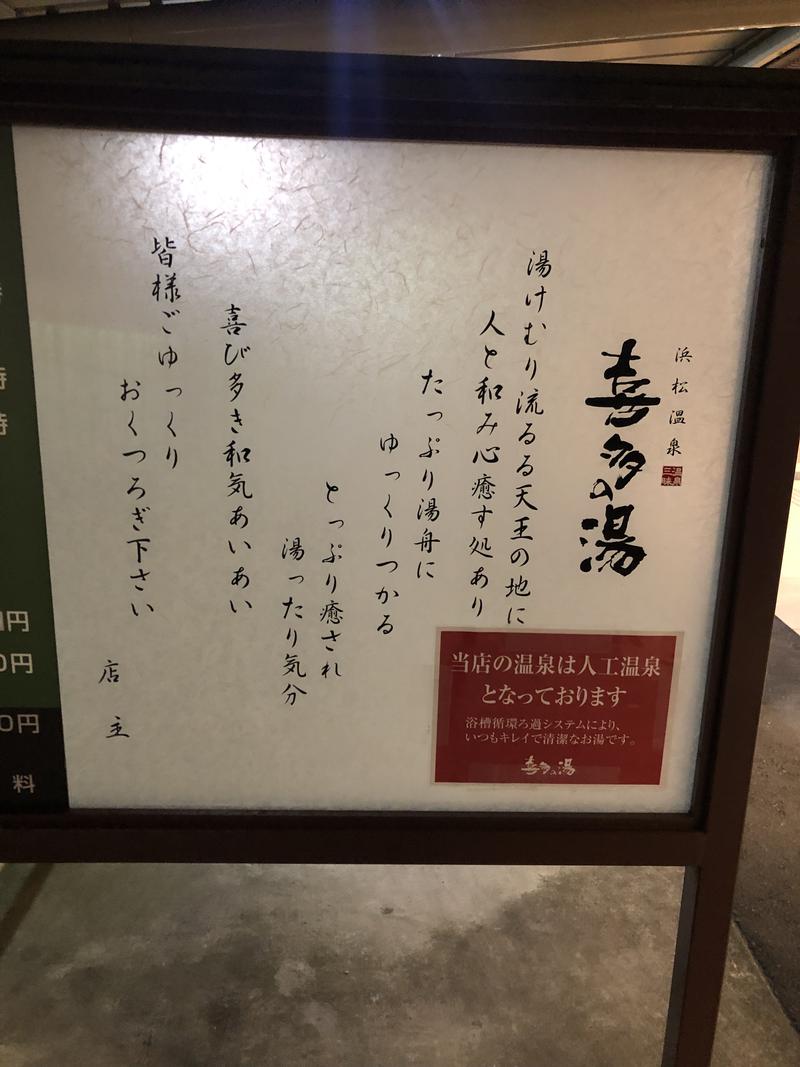 浜松温泉
喜多の湯
湯けむり流るる天王の地に
人と和み心癒す処あり
たっぷり湯舟に
ゆっくりつかる
とっぷり癒され
湯ったり気分
喜び多き和気あいあい
皆様ごゆっくり
おくつろぎ下さい
店主
当店の温泉は人工温泉
となっております
浴槽循環ろ過システムにより、
いつもキレイで清潔なお湯です。
喜多の湯
時
時
円
0円
0円
料